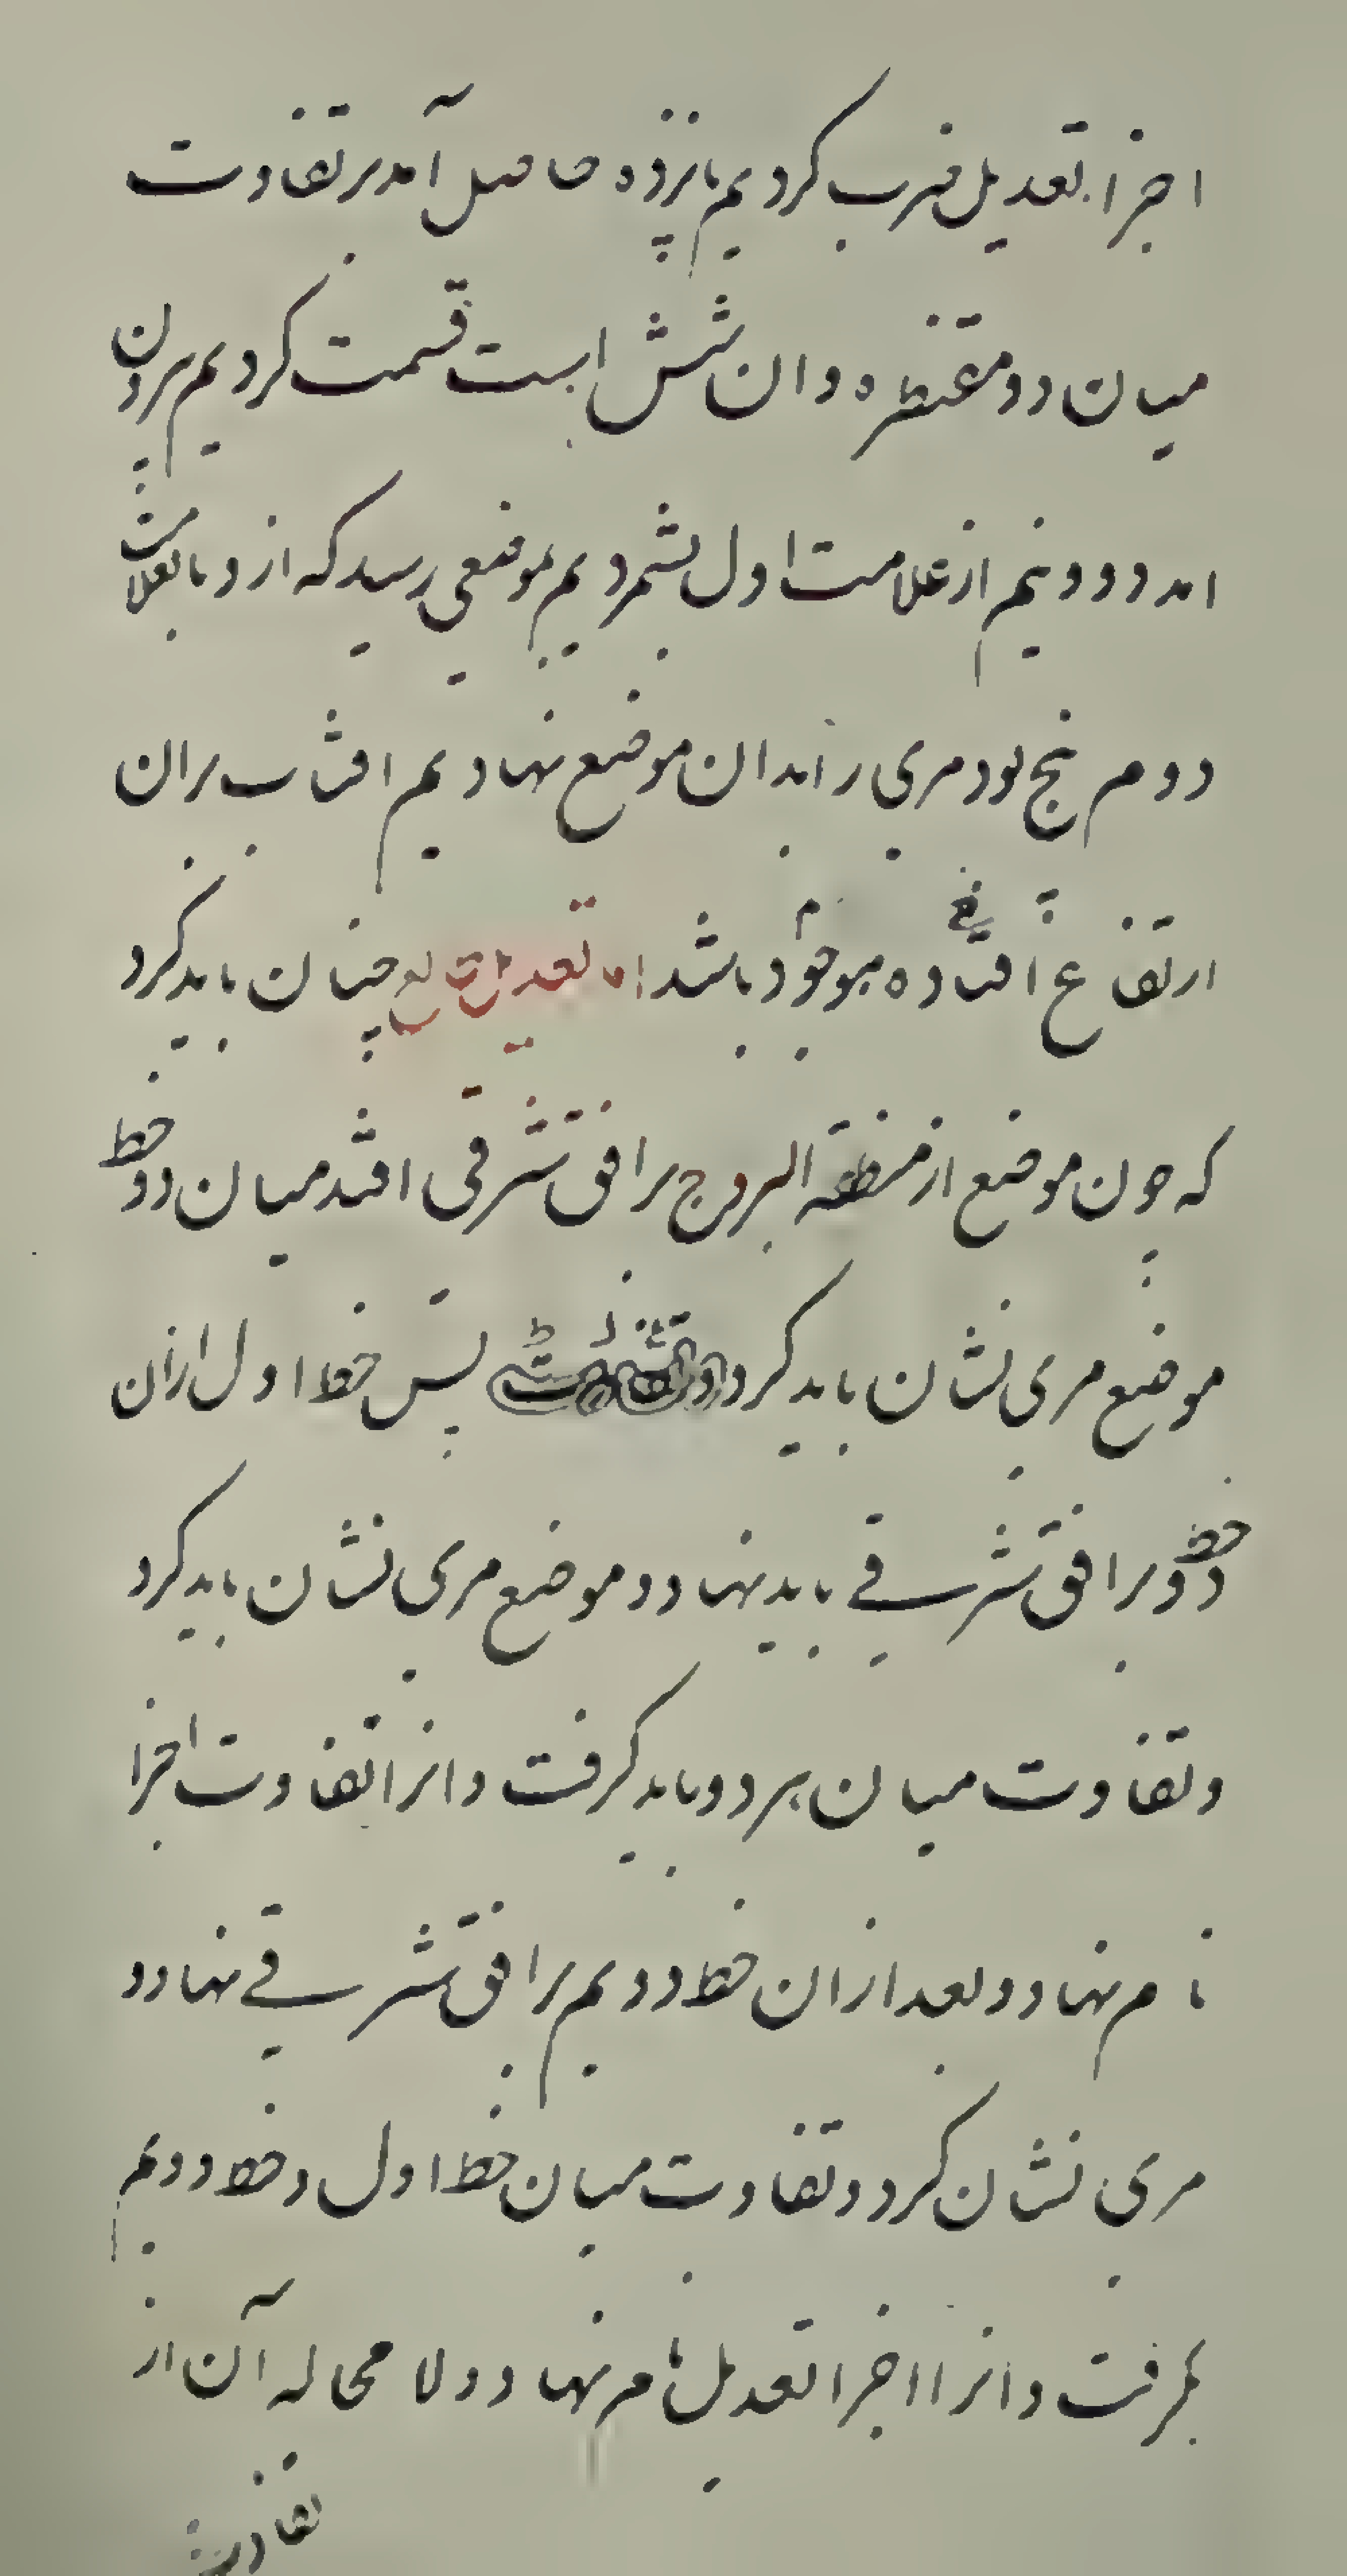 اجزا تعدیل ضرب کردیم پانزده حاصل آمد بر تفاوت
میان دو مقنطره و ان شش است قسمت کردیم بیرون
امد دو و نیم از علامت اول بشمردیم بموضعی رسید که از و تا بعلامت
دوم پنج بود مری را بدان موضع نهادیم افتاب بران
ارتفاع افتاده موجود باشد اما تعدیل طالع چنان باید کرد
که چون موضع از منطقة البروج بر افق شرقی افتد میان دو خط
موضع مری نشان باید کرد پس خط اول ازان
دو خط بر افق شرقی باید نهاد و موضع مری نشان باید کرد
و تفاوت میان هر دو باید گرفت و انرا تفاوت اجزا
نام نهاد و بعد ازان خط دویم بر افق شرقی نهاد و
مری نشان کرد و تفاوت میان خط اول و خط دویم
بگرفت و انرا اجزا تعدیل نام نهاد و لا محاله آن از
تفاوت